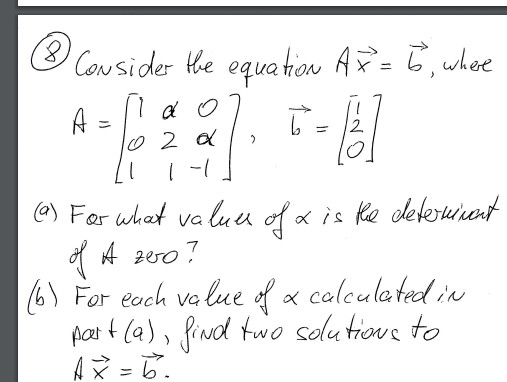 ⑧ Consider the equation A𝑥⃗ = 𝑏⃗, where
A = [1 α 0; 0 2 α; 1 1 -1], 𝑏⃗ = [1; 2; 0]
(a) For what values of α is the determinant
of A zero?
(b) For each value of α calculated in
part (a), find two solutions to
A𝑥⃗ = 𝑏⃗.